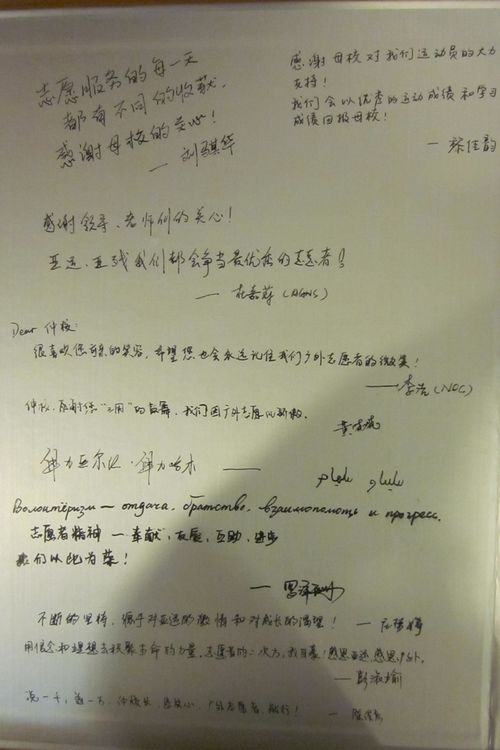 志愿服务的每一天
都有不同的收获.
感谢母校的关心!
— 刘骐华
感谢母校对我们运动员的大力
支持!
我们会以优秀的运动成绩和学习
成绩回报母校!
— 佳韵
感谢领导、老师们的关心!
亚运、亚残我们都会争当最优秀的志愿者!
— (AGNS)
Dear 仲校:
很喜欢您可亲的笑容,希望您也会永远记住我们广外志愿者的微笑!
—— 李浩 (NOC)
仲校,感谢您“三用”的鼓舞,我们因广外志愿
黄
力亚尔江·力哈木 ——
Волонтёризм — отдача, братство, взаимопомощь и прогресс.
志愿者精神 — 奉献,友爱,互助,进步
我们以此为荣!
— 泽
不断的坚持,源于对亚运的激情和对成长的渴望! —
用信念和理想去积聚生命的力量,志愿者的二次方,我自豪!感恩亚运,感恩广外.
— 彭淑瑜
说一千,道一万,仲校长,您放心,广外志愿者,能行! —